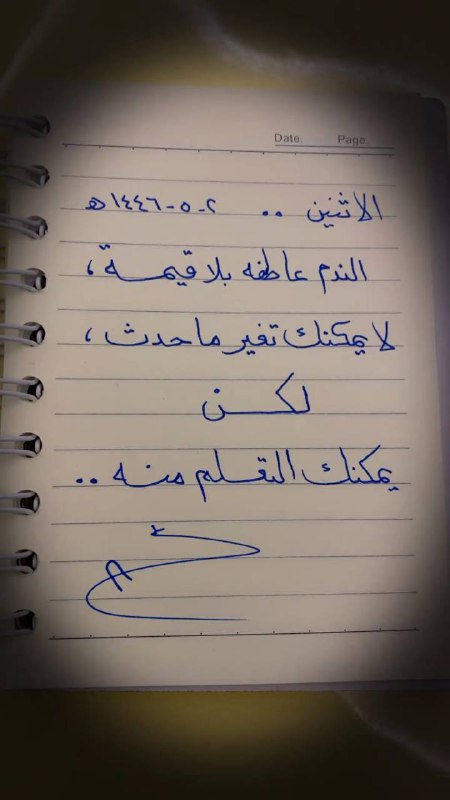 Date. Page.
الاثنين .. ٢-٥-١٤٤٦ه
الندم عاطفه بلا قيمـــة ،
لا يمكنك تغير ما حدث ،
لكــــن
يمكنك التعلم منه ..